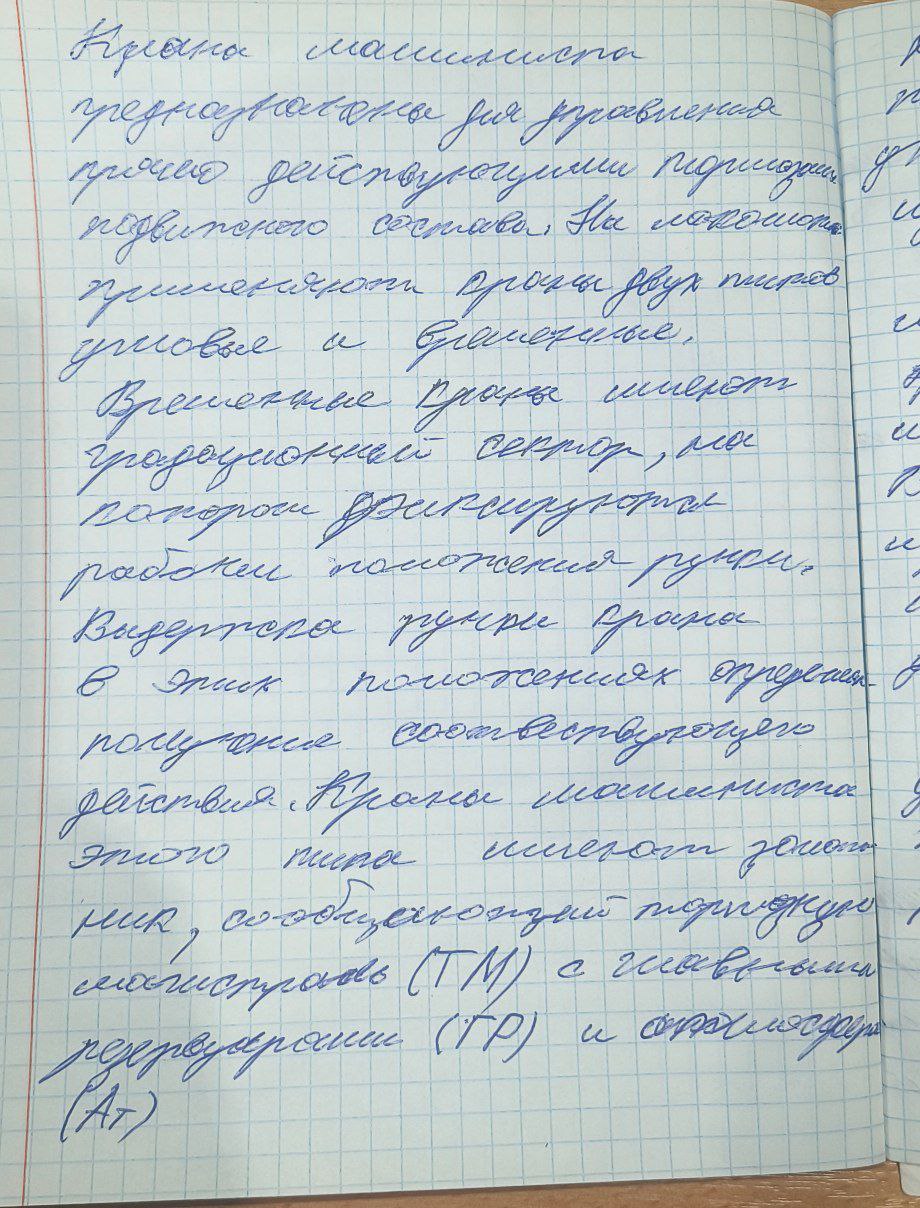 Крана машиниста
предназначены для управления
прямо действующими тормозами
подвижного состава. На локомотив
применяют краны двух типов
угловые и временные.
Временные краны имеют
градационный сектор, на
котором фиксируются
рабочии положения ручки.
Выдержка ручки крана
в этих положениях определяет
получение соотвествующего
действия. Краны машиниста
этого типа имеют золот-
ник, сообщающий тормозную
магистраль (ТМ) с главными
резервуарами (ГР) и атмосферой
(Ат)